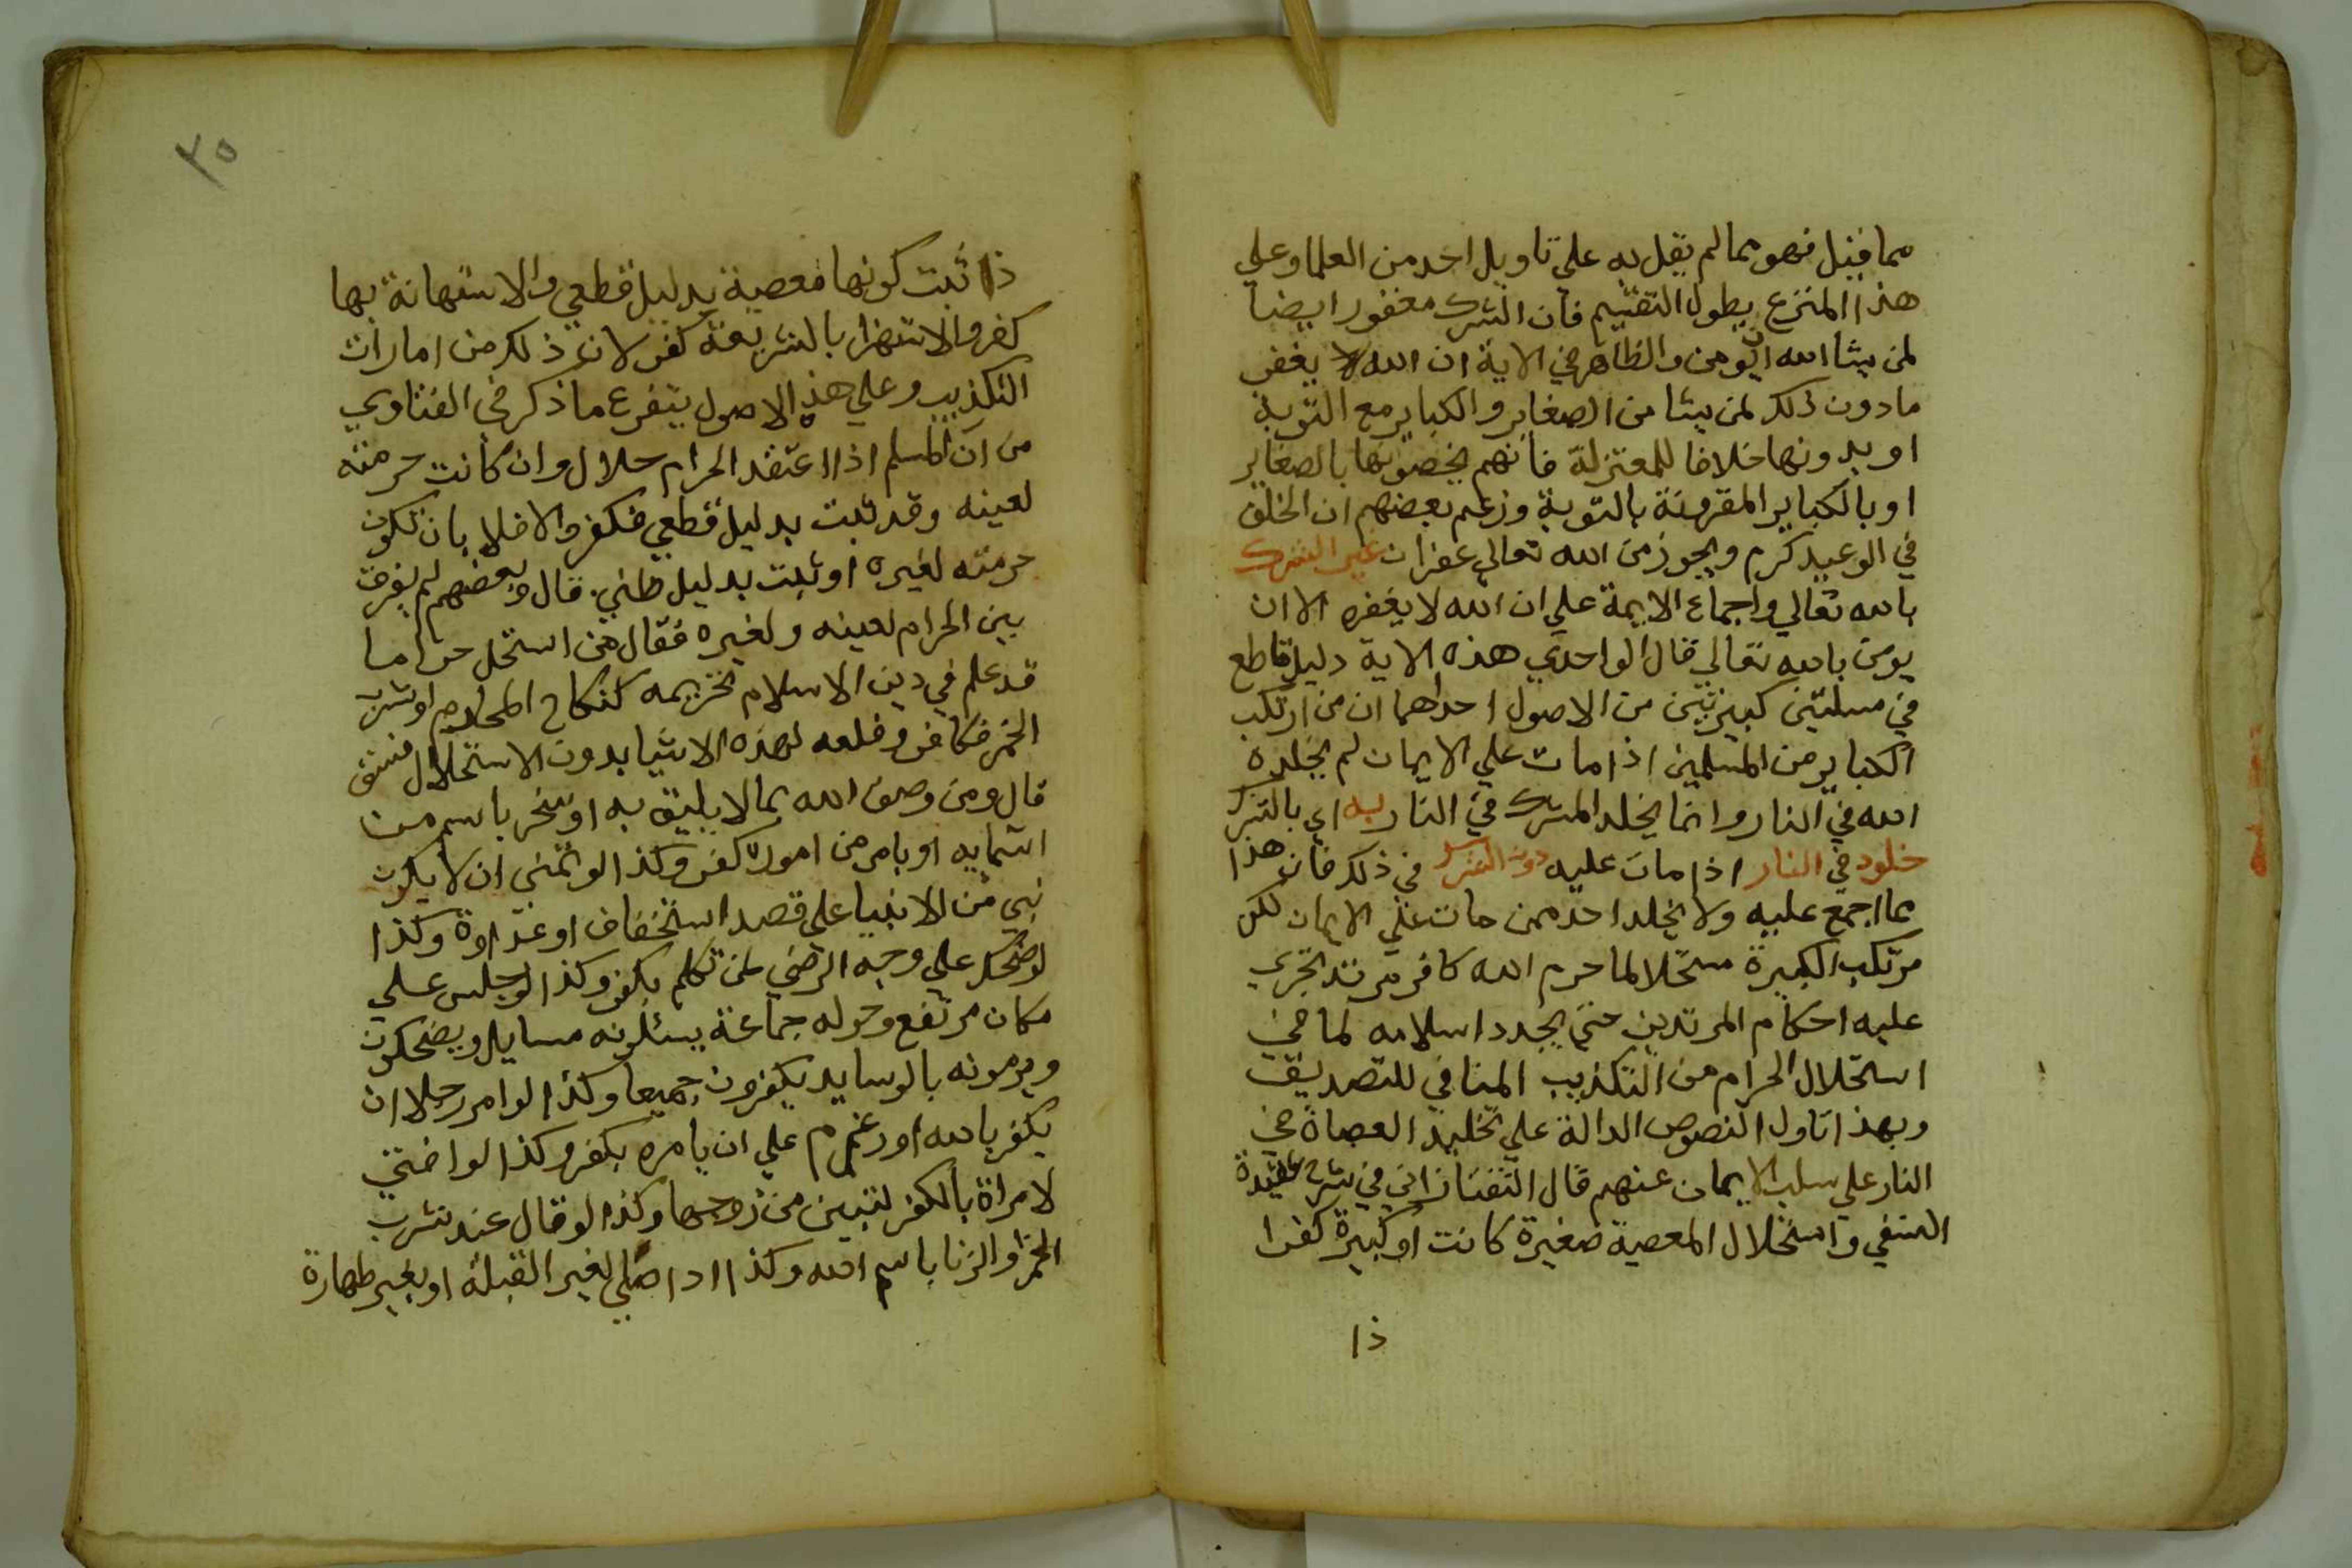 مما قيل فهو مما لم يقل به علي تاويل احد من العلما وعلي
هذا المنزع يطول التقييم فان الشرك مغفور ايضا
لمن يشا الله ان يومن والظاهر في الاية ان الله لا يغفر
ما دون ذلك لمن يشا من الصغاير والكباير مع التوبة
او بدونها خلافا للمعتزلة فانهم يخصونها بالصغاير
او بالكباير المقرونة بالتوبة وزعم بعضهم ان الخلف
في الوعيد كرم ويجوز من الله تعالي غفران غير الشرك
بالله تعالي واجماع الايمة علي ان الله لا يغفره الا ان
يومن بالله تعالي قال الواحدي هذه الاية دليل قاطع
في مسلتين كبيرتين من الاصول احداهما ان من ارتكب
الكباير من المسلمين اذا مات علي الايمان لم يخلده
الله في النار وانما يخلد المشرك في النار به اي بالشرك
خلود في النار اذا مات عليه دون الشرك في ذلك فان هذا
مما اجمع عليه ولا يخلد احد ممن مات علي الايمان لكن
مرتكب الكبيرة مستحلا لما حرم الله كافر مرتد تجري
عليه احكام المرتدين حتي يجدد اسلامه لما في
استحلال الحرام من التكذيب المنافي للتصديق
وبهذا تاول النصوص الدالة علي تخليد العصاة في
النار علي سلب الايمان عنهم قال التفتازاني في شرح عقيدة
النسفي واستحلال المعصية صغيرة كانت او كبيرة كفر ا
ذا
٣٥
ذا ثبت كونها معصية بدليل قطعي والاستهانة بها
كفر والاستهزا بالشريعة كفر لان ذلك من امارات
التكذيب وعلي هذه الاصول يتفرع ما ذكر في الفتاوي
من ان المسلم اذا اعتقد الحرام حلال وان كانت حرمته
لعينه وقد ثبت بدليل قطعي فكفر والا فلا بان تكون
حرمته لغيره او ثبت بدليل ظني. قال وبعضهم لم يفرق
بين الحرام لعينه ولغيره فقال من استحل حراما
قد علم في دين الاسلام تحريمه كنكاح المحارم او شرب
الخمر فكافر وفعله لهذه الاشيا بدون الاستحلال فسق
قال ومن وصف الله بما لا يليق به او سخر باسم من
اسمايه او بامر من اموره كفر وكذا لو تمني ان لا يكون
نبي من الانبيا علي قصد استخفاف او عداوة وكذا
لو ضحك علي وجه الرضي لمن تكلم بكفر وكذا لو جلس علي
مكان مرتفع وحوله جماعة يسئلونه مسايل ويضحكون
ويرمونه بالوسايد يكفرون جميعا وكذا لو امر رجلا ان
يكفر بالله او عزم علي ان يامره بكفر وكذا لو افتي
لامراة بالكفر لتبين من زوجها وكذا لو قال عند شرب
الخمر والزنا باسم الله وكذا اذا صلي لغير القبلة او بغير طهارة